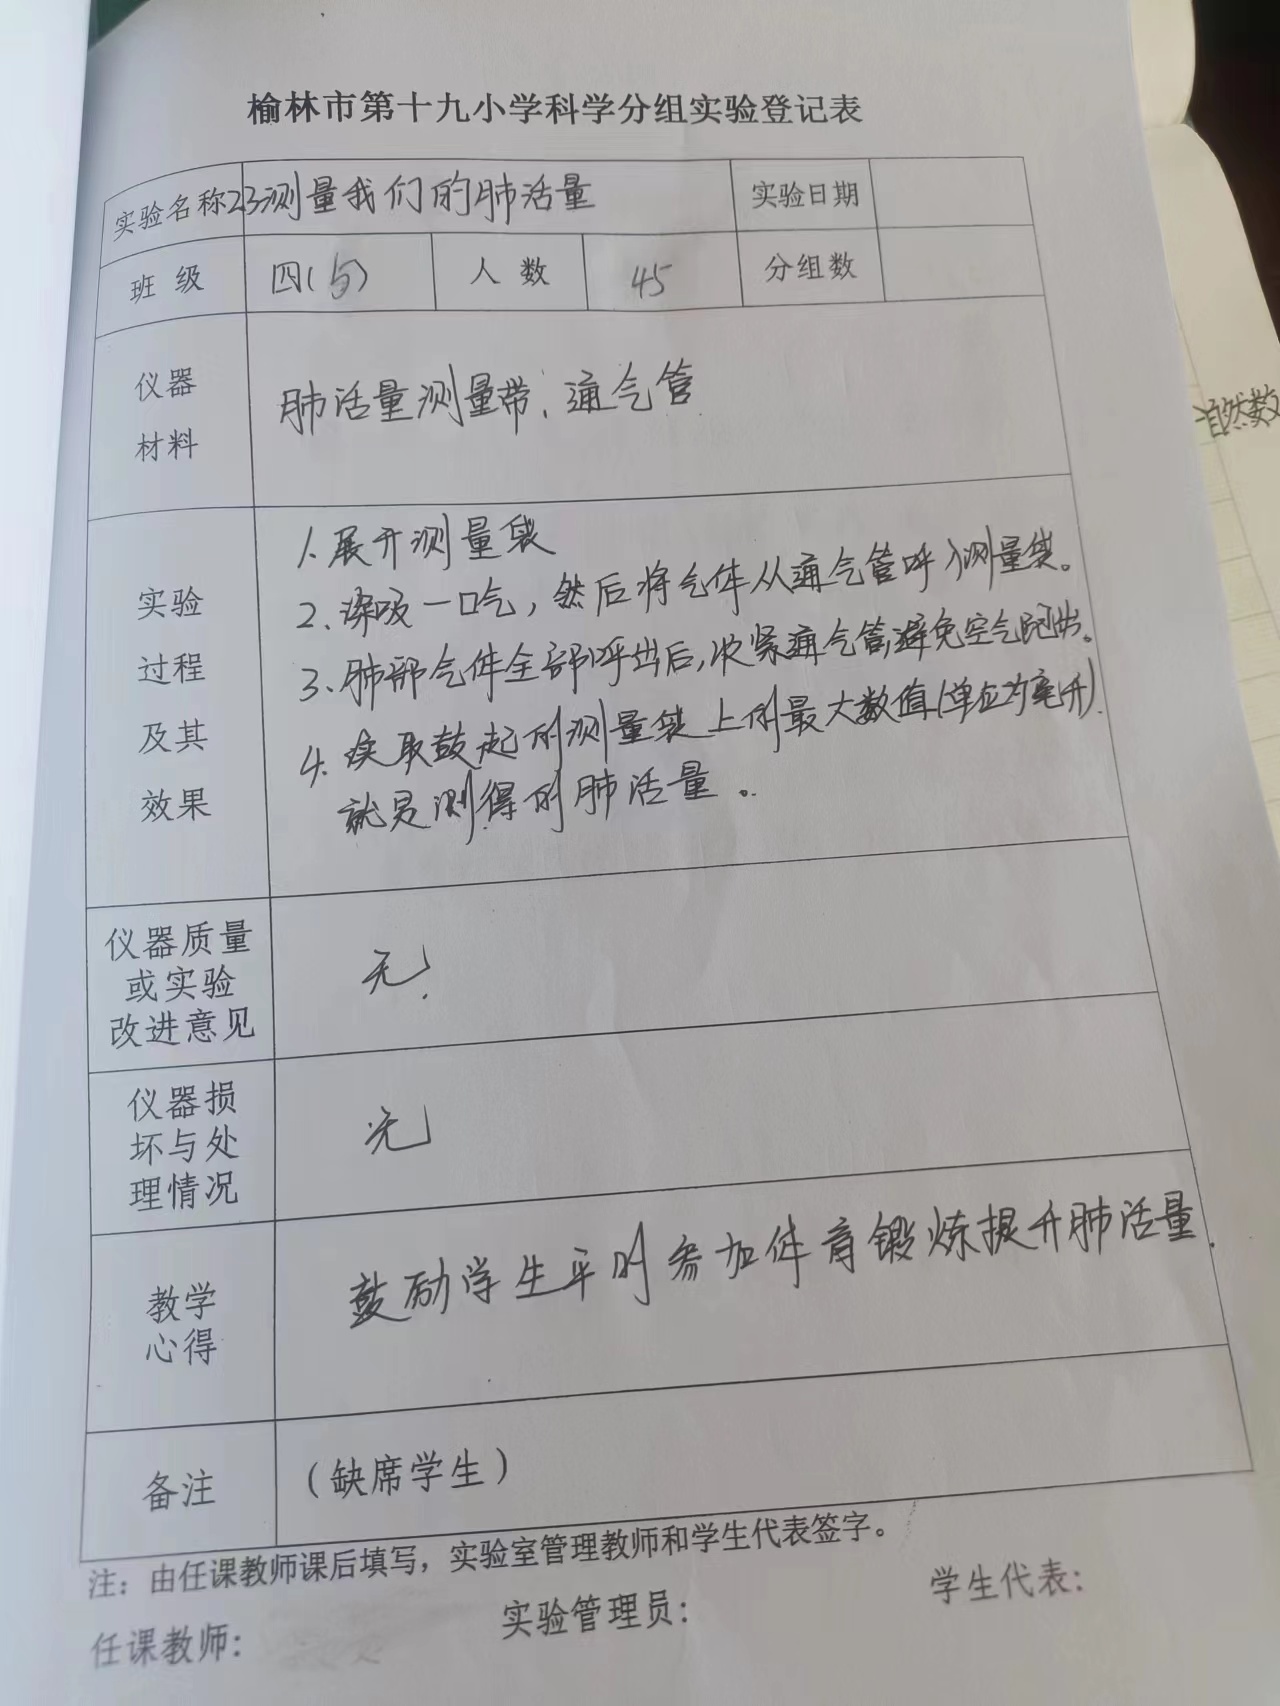 榆林市第十九小学科学分组实验登记表
实验名称 2.3测量我们的肺活量 实验日期
班 级 四( ) 人 数 45 分组数
仪器
材料
肺活量测量带、通气管
实验
过程
及其
效果
1.展开测量袋
2.深吸一口气,然后将气体从通气管呼入测量袋。
3.肺部气体全部呼出后,收紧通气管,避免空气跑出。
4.读取鼓起的测量袋上的最大数值(单位为毫升).
就是测得的肺活量。
仪器质量
或实验
改进意见
无.
仪器损
坏与处
理情况
无
教学
心得
鼓励学生平时参加体育锻炼提升肺活量.
备注
(缺席学生)
注：由任课教师课后填写，实验室管理教师和学生代表签字。
任课教师: 实验管理员: 学生代表:
自然数